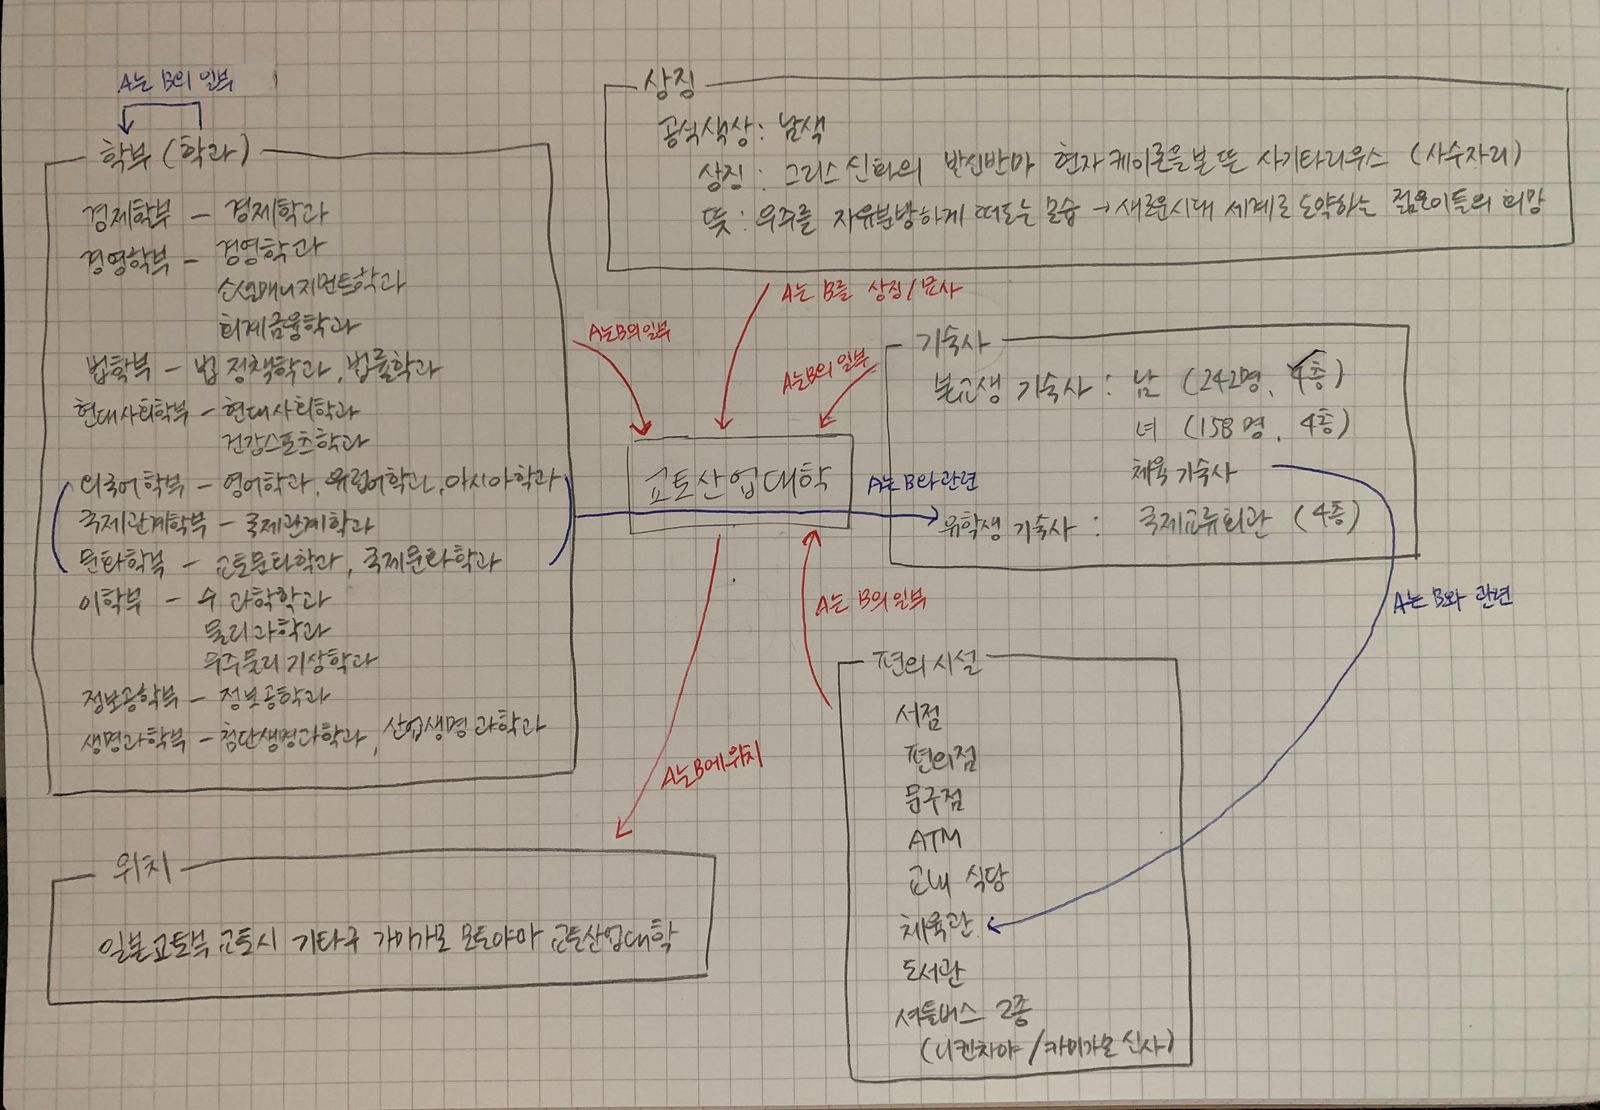 A는 B의 일부
학부 (학과)
경제학부 - 경제학과
경영학부 - 경영학과
소셜매니지먼트학과
회계금융학과
법학부 - 법정책학과, 법률학과
현대사회학부 - 현대사회학과
건강스포츠학과
외국어학부 - 영어학과, 유럽어학과, 아시아학과
국제관계학부 - 국제관계학과
문화학부 - 교토문화학과, 국제문화학과
이학부 - 수 과학학과
물리과학과
우주물리 기상학과
정보공학부 - 정보공학과
생명과학부 - 첨단생명과학과, 산업생명과학과
상징
공식색상: 남색
상징: 그리스신화의 반신반마 현자 케이론을 본뜬 사기타리우스 (사수자리)
뜻: 우주를 자유분방하게 떠도는 모습 → 새로운시대 세계로 도약하는 젊은이들의 희망
A는 B의 일부
A는 B를 상징/묘사
A는 B의 일부
교토산업대학
A는 B와 관련
기숙사
본교생 기숙사: 남 (242명, 4층)
녀 (158명, 4층)
체육기숙사
유학생 기숙사: 국제교류회관 (4층)
A는 B의 일부
A는 B와 관련
A는 B에 위치
위치
일본 교토부 교토시 기타구 가미가모 모토야마 교토산업대학
편의시설
서점
편의점
문구점
ATM
교내 식당
체육관
도서관
셔틀버스 2종
(니켄차야/카미가모신사)